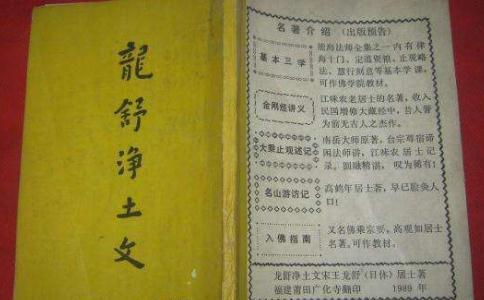 龍舒浄土文
名著介绍 (出版预告)
基本三学
能海法师全集之一内有律
海十门、定道资粮、止观略
法、慧行刻意等基本学课,
可作佛学院教材。
金刚经讲义
江味农老居士的名著,收入
民国增修大藏经中,昔人誉
为前无古人之杰作。
大乘止观述记
南岳大师原著,台宗尊宿谛
闲法师讲,江味农居士记
录。圆融精湛,叹为稀有!
名山游访记
高鹤年居士著,早已脍炙人
口!
入佛指南
又名佛乘宗要,高观如居士
名著。可作教材。
龙舒净土文宋王龙舒(日休)居士著
福建莆田广化寺翻印 1989年